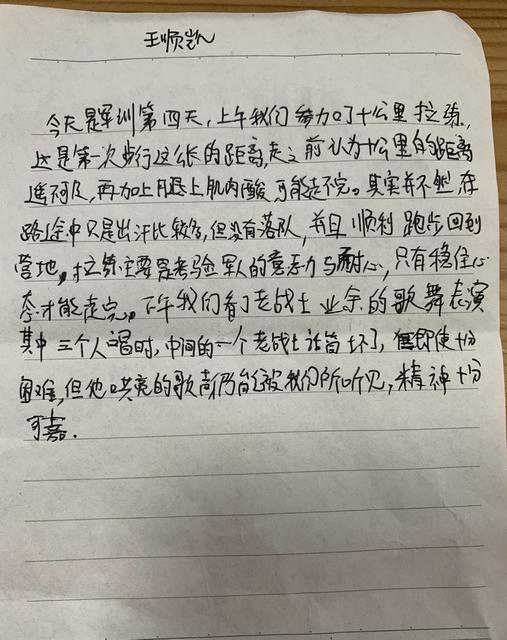 王顺凯
今天是军训第四天,上午我们参加了十公里拉练,
这是第一次步行这么长的距离,走之前认为十公里的距离
遥不可及,再加上腿上肌肉酸,可能走不完。其实并不然,在
路途中只是出汗比较多,但没有落队,并且顺利跑步回到
营地。拉练主要是考验军人的意志力与耐心,只有稳住心
态才能走完。下午我们看了老战士业余的歌舞表演
其中三个人唱时,中间的一个老战士话筒坏了,即使十分
困难,但他洪亮的歌声仍能被我们所听见,精神十分
可嘉.